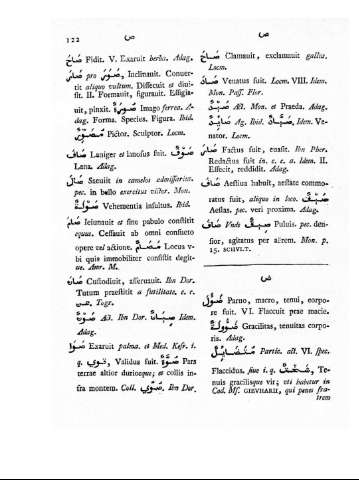 122
ص
ص
صاخ Fidit. V. Exaruit herba. Adag.
صار pro صور, Inclinauit. Conuer-
tit aliquo vultum. Dissecuit et diui-
sit. II. Formauit, figurauit. Effigia-
uit, pinxit. صورة Imago ferrea. A-
dag. Forma. Species. Figura. Ibid.
مصور Pictor. Sculptor. Locm.
صاف Laniger et lanosus fuit. صوف
Lana. Adag.
صال Saeuiit in camelos admissarius.
pec. in bello exercitus Mon.
صولة Vehementia insultus. Ibid.
صام Ieiunauit et sine pabulo constitit
equus. Cessauit ab omni consueto
opere vel actione. مصام Locus v-
bi quis immobiliter consistit degit-
ue. Amr. M.
صان Custodiuit, asseruauit. Ibn Dor.
Tutum praestitit a
صون Act. Ibn Dor. صيانة Idem.
Adag.
صوا Exaruit palma. et Med. Kesr. i.
q. صوي, Validus fuit. صوة Para
terrae altior duriorque; et collis in-
fra montem. Coll. صوى. Ibn Dor.
صاح Clamauit, exclamauit gallus.
Locm.
صاد Venatus fuit. Locm. VIII. Idem.
Mon. Pass. Flor.
صيد Act. Mon. et Praeda. Adag.
صايد Ag. Ibid. صياد Idem. Ve-
nator. Locm.
صار Factus fuit, euasit. Ibn Pher.
Redactus fuit in. c. c. a. Idem. II.
Effecit, reddidit. Adag.
صاف Aestiua habuit, aestate commo-
ratus fuit, aliquo in loco. صيف
Aestas. pec. veri proxima. Adag.
صاق Vnde صيق Puluis. pec. den-
sior, agitatus per aërem. Mon. p.
15. SCHVLT.
ض
ضؤل Paruo, macro, tenui, corpo-
re fuit. VI. Flaccuit prae macie.
ضؤولة Gracilitas, tenuitas corpo-
ris. Adag.
متضايل Partic. act. VI. spec.
Flaccidus. siue i. q. ضعف, Te-
nuis gracilisque vir; vti habetur in
Cod. Ms. GIEVHARII, qui penes fra-
trem